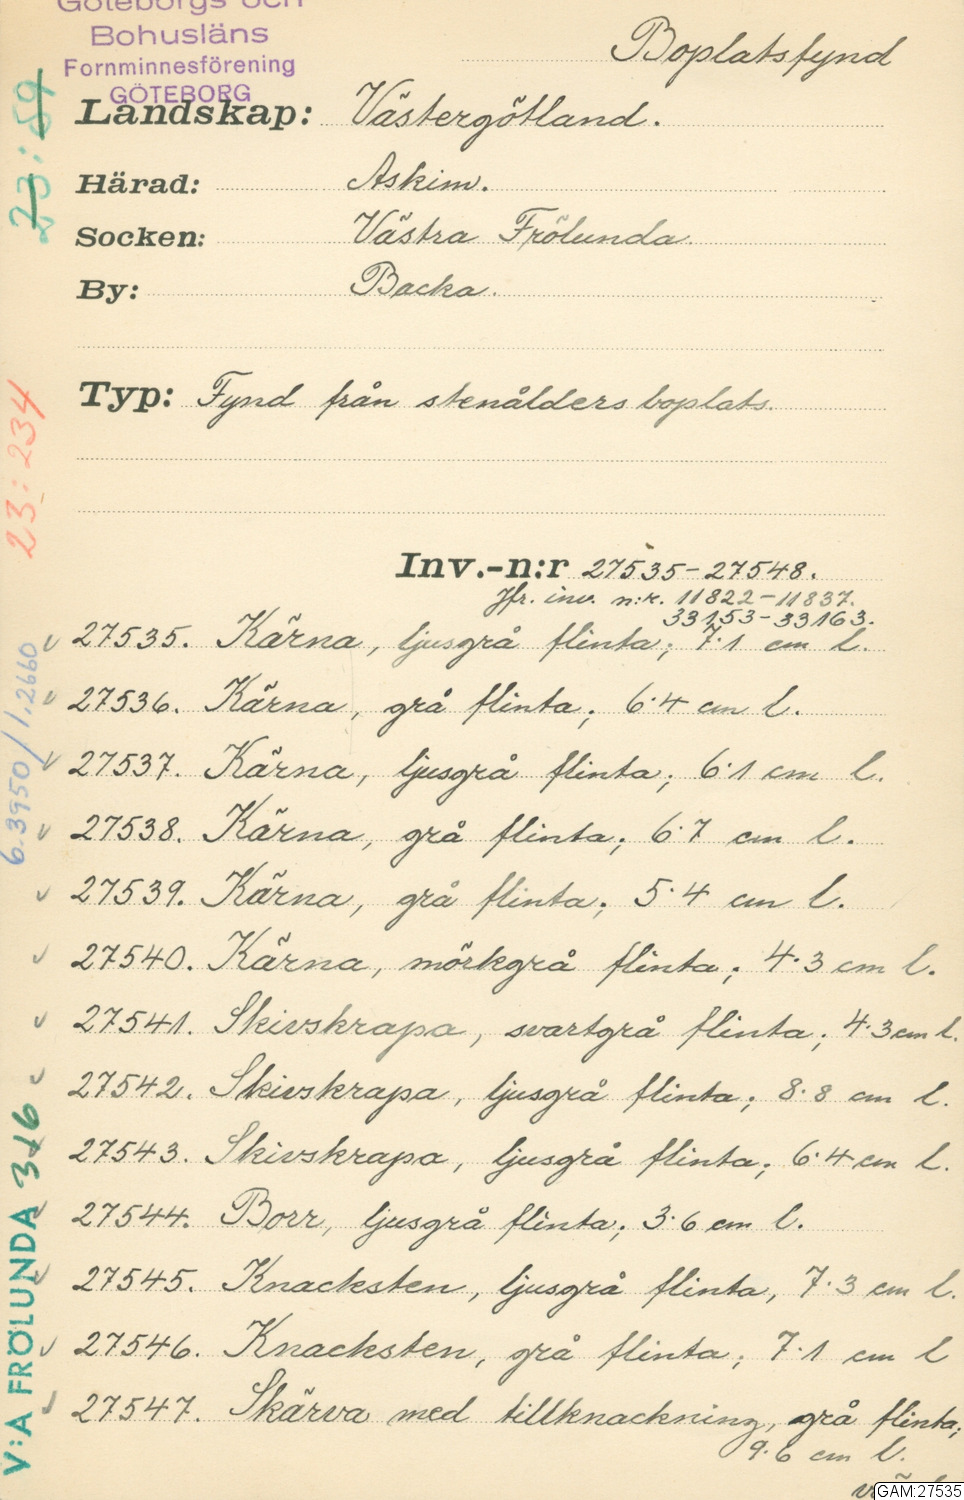 Göteborgs och
Bohusläns
Fornminnesförening
GÖTEBORG
Boplatsfynd
Landskap: Västergötland.
Härad: Askim.
Socken: Västra Frölunda.
By: Backa.
Typ: Fynd från stenålders boplats.
Inv.-n:r 27535-27548.
Jfr. inv. n:r. 11822-11837.
33153-33163.
27535. Kärna, ljusgrå flinta; 7·1 cm l.
27536. Kärna, grå flinta; 6·4 cm l.
27537. Kärna, ljusgrå flinta; 6·1 cm l.
27538. Kärna, grå flinta; 6·7 cm l.
27539. Kärna, grå flinta; 5·4 cm l.
27540. Kärna, mörkgrå flinta; 4·3 cm l.
27541. Skivskrapa, svartgrå flinta; 4·3 cm l.
27542. Skivskrapa, ljusgrå flinta; 8·8 cm l.
27543. Skivskrapa, ljusgrå flinta; 6·4 cm l.
27544. Borr, ljusgrå flinta; 3·6 cm l.
27545. Knacksten, ljusgrå flinta, 7·3 cm l.
27546. Knacksten, grå flinta; 7·1 cm l
27547. Skärva med tillknackning, grå flinta;
9·6 cm l.
GAM:27535
23:59
23:234
6.3950/1.2660
V:A FRÖLUNDA 316